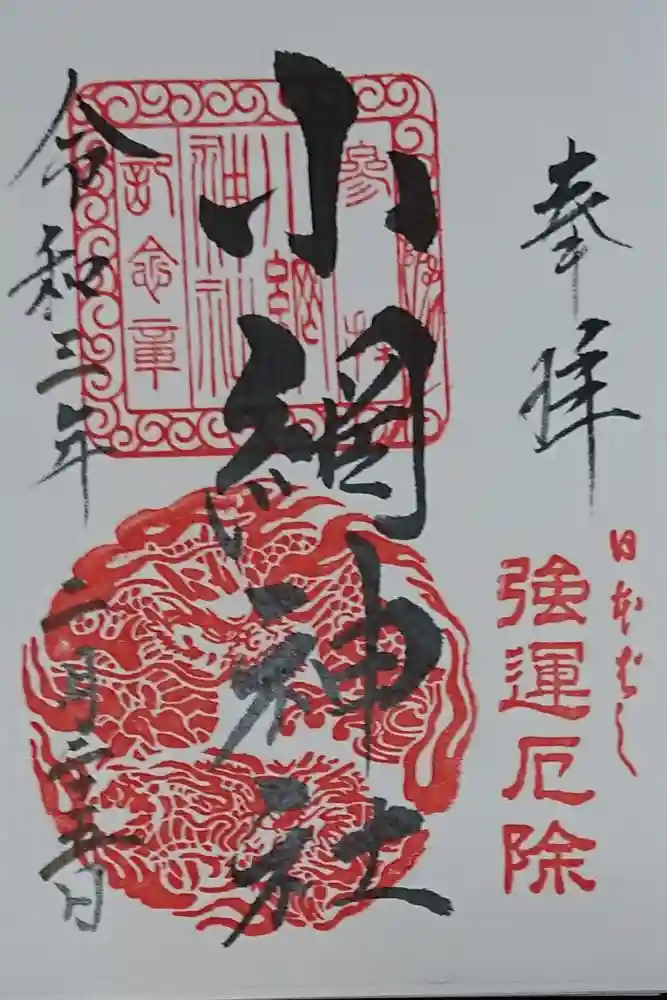 奉拝
日本ばし
強運厄除
小網神社
参拝
小網
神社
記念章
令和三年
二月二十五日